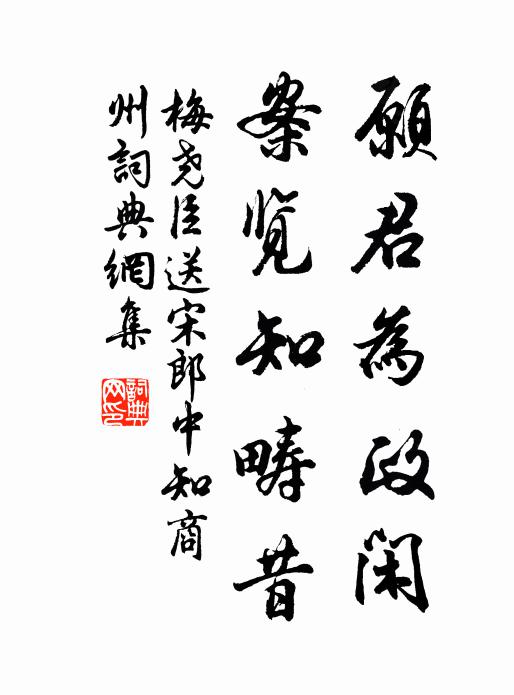 願君為政閑
案覽知疇昔
梅堯臣送宋郎中知商
州詞典網集
詞典
网印